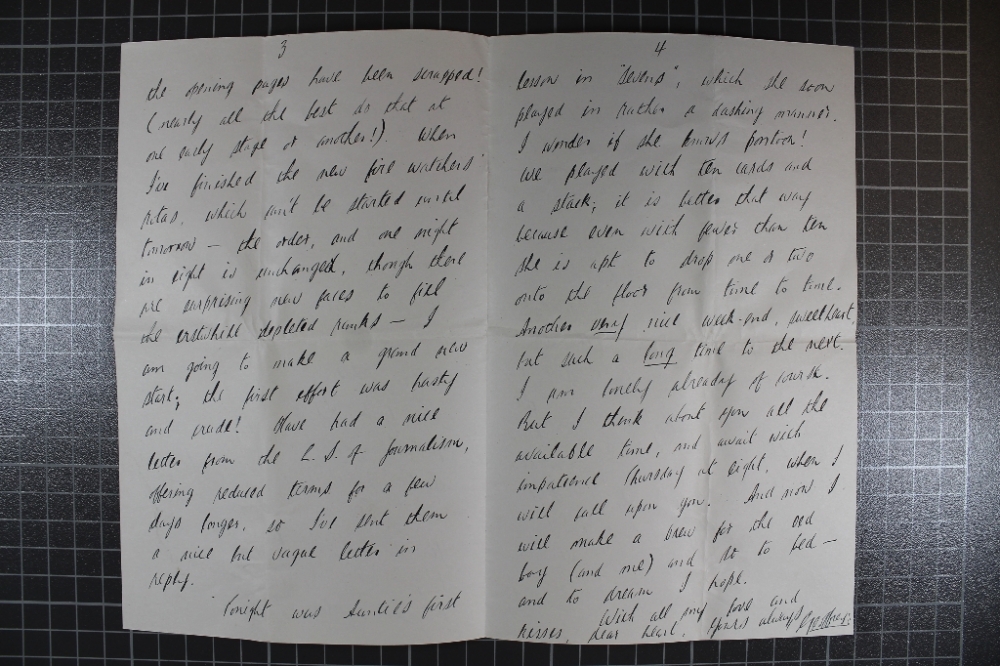 3
the opening pages have been scrapped!
(nearly all the best do that at
one early stage or another!). When
I've finished the new fire watchers'
rotas, which can't be started until
tomorrow — the order, and one night
in eight is unchanged, though there
are surprising new faces to fill
the erstwhile depleted ranks — I
am going to make a grand new
start; the first effort was hasty
and crude! Have had a nice
letter from the L. S. of Journalism,
offering reduced terms for a few
days longer, so I've sent them
a nice but vague letter in
reply.
Tonight was Auntie's first
4
lesson in "Sevens", which she soon
played in rather a dashing manner.
I wonder if she knows pontoon!
We played with ten cards and
a stack; it is better that way
because even with fewer than ten
she is apt to drop one or two
onto the floor from time to time.
Another very nice week-end, sweetheart,
but such a long time to the next.
I am lonely already of course.
But I think about you all the
available time, and await with
impatience Thursday at eight, when I
will call upon you. And now I
will make a brew for the old
boy (and me) and so to bed —
and to dream I hope.
With all my love and
kisses, dear heart, Yours always